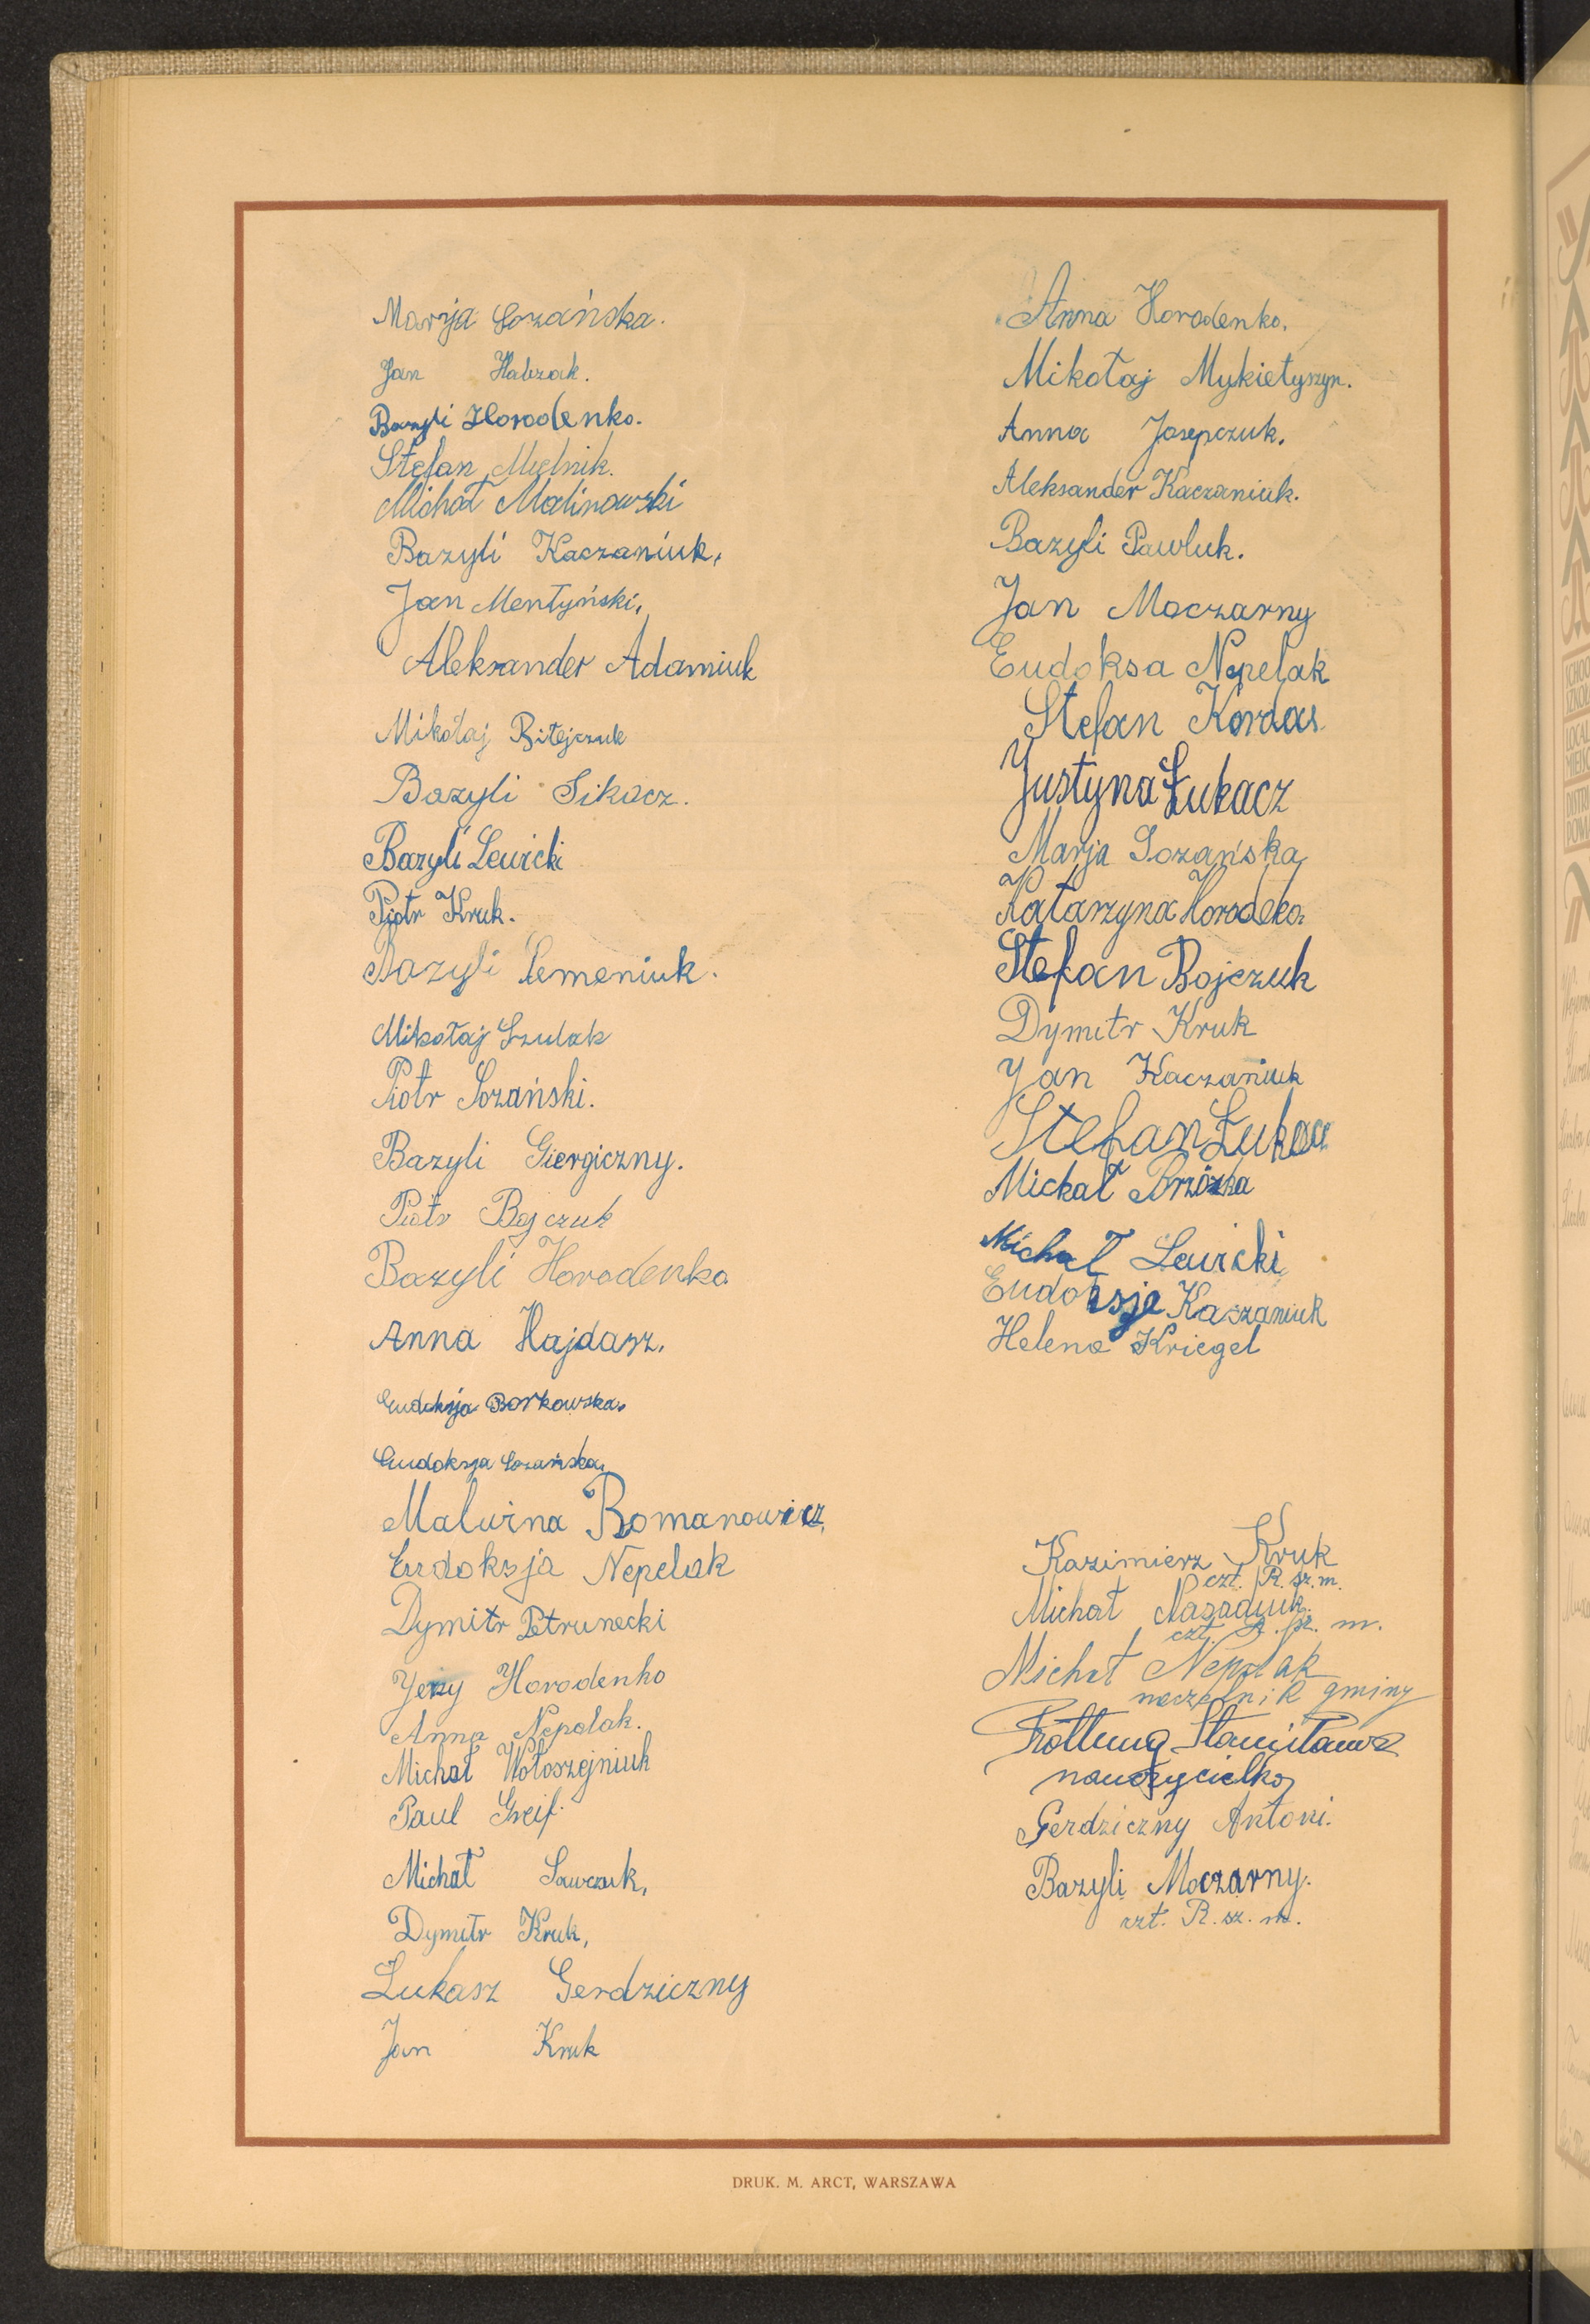 Marja Łozańska.
Jan Habzak.
Bazyli Horodenko.
Stefan Mielnik.
Michał Malinowski
Bazyli Kaczaniuk,
Jan Mentyński,
Aleksander Adamiuk
Mikołaj Bitejczuk
Bazyli Sikacz.
Bazyli Lewicki
Piotr Kruk.
Bazyli Semeniuk.
Mikołaj Szulak
Piotr Łozański.
Bazyli Giergiczny.
Piotr Bojczuk
Bazyli Horodenko
Anna Hajdasz.
Eudoksja Borkowska.
Eudoksja Łozańska,
Malwina Romanowicz,
Eudoksja Nepelak
Dymitr Petrunecki
Jerzy Horodenko
Anna Nepelak.
Michał Wołoszejniuk
Paul Greif.
Michał Sawczuk,
Dymitr Kruk,
Łukasz Gerdziczny
Jan Kruk
Anna Horodenko.
Mikołaj Mykietyszyn.
Anna Josepczuk.
Aleksander Kaczaniuk.
Bazyli Pawluk.
Jan Moczarny
Eudoksa Nepelak
Stefan Kordas
Justyna Łukacz
Marja Łozańska
Katarzyna Horodeko
Stefan Bojczuk
Dymitr Kruk
Jan Kaczaniuk
Stefan Łukacz
Michał Brzózka
Michał Lewicki
Eudoksja Kaszaniuk
Helena Kriegel
Kazimierz Kruk
czł. R. sz. m.
Michał Nazadiuk.
czł. R. sz. m.
Michał Nepelak
naczelnik gminy
Stanisława
nauczycielka
Gerdziczny Antoni.
Bazyli Moczarny.
czł. R. sz. m.
DRUK. M. ARCT, WARSZAWA